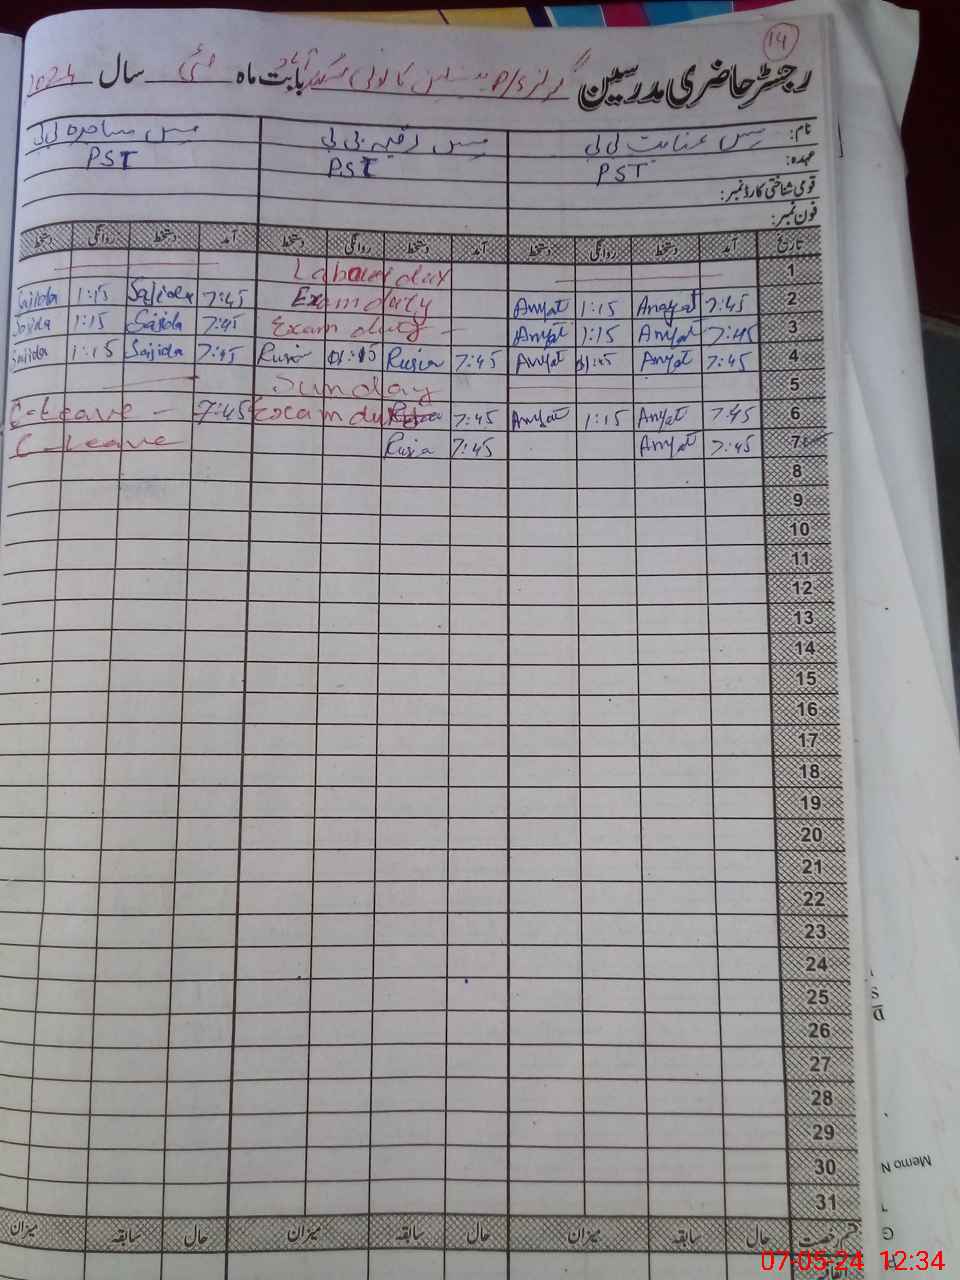 14
رجسٹر حاضری مدرسین گرلز P/S کالونی بابت ماہ مئی سال 2024
نام: مس عنایت بی بی مس رقیہ بی بی مس ساجدہ بی بی
عہدہ: PST PST PST
قومی شناختی کارڈ نمبر:
فون نمبر:
تاریخ آمد دستخط روانگی دستخط آمد دستخط روانگی دستخط آمد دستخط روانگی دستخط
1 Labour day
2 7:45 Anayat 1:15 Anyat Exam duty 7:45 Sajida 1:15 Sajida
3 7:45 Anyat 1:15 Anyat Exam duty 7:45 Sajida 1:15 Sajida
4 7:45 Anyat 01:15 Anyat 7:45 Ruqia 01:15 Ruqia 7:45 Sajida 1:15 Sajida
5 Sunday
6 7:45 Anyat 1:15 Anyat 7:45 Exam duty 7:45 C-Leave
7 7:45 Anyat 7:45 Ruqia C-Leave
8
9
10
11
12
13
14
15
16
17
18
19
20
21
22
23
24
25
26
27
28
29
30
31
قسم رخصت حال سابقہ میزان حال سابقہ میزان حال سابقہ میزان
اتفاقیہ
Memo N
07-05-24 12:34